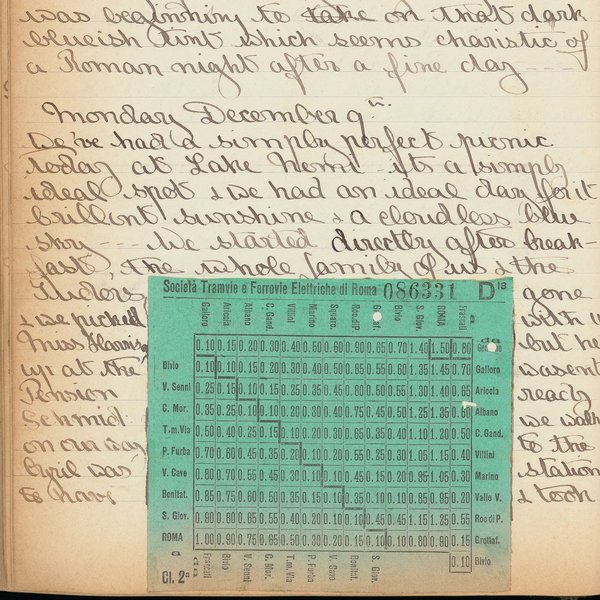 was beginning to take on that dark
blueish tint which seems charistic of
a Roman night after a fine day ----
Monday December 9th.
We've had a simply perfect picnic
today at Lake Nemi - its a simply
ideal spot & we had an ideal day for it
brillint sunshine & a cloudless blue
sky --- We started directly after break-
fast, the whole family of us & the
Tudors gone
& we picked with
Miss Harris but he
up at the wasent
Pension ready
Schmid we walk
on our way to the
Cyril was station
to have & took
Società Tramvie e Ferrovie Elettriche di Roma 086331 D 18
Galloro Ariccia Albano C. Gand. Villini Marino Squarc. Roc.diP. Bivio S. Giov. ROMA Frascati
a da
0.10 0.15 0.20 0.30 0.40 0.50 0.60 0.80 0.65 0.70 1.40 1.50 0.80
Bivio 0.10 0.10 0.15 0.20 1.35 1.45 0.70 Galloro
V. Senni 0.25 0.15 0.10 0.15 0.25 0.35 0.45 0.80 0.50 0.55 1.30 1.40 0.65 Ariccia
C. Mor. 0.35 0.25 0.10 0.10 0.20 0.30 0.40 0.75 0.45 0.50 1.25 1.35 0.60 Albano
T.m.Via 0.50 0.40 0.25 0.15 0.50 C. Gand.
P. Furba 0.70 0.60 0.45 0.35 0.20 0.40 Villini
V. Cave 0.80 0.70 0.55 0.45 0.30 0.10 0.30 Marino
Bonitat. 0.85 0.75 0.60 0.50 0.35 0.15 0.10 0.30 Valle V.
S. Giov. 0.90 0.80 0.65 0.55 0.40 0.20 0.10 0.10 0.45 0.45 1.15 1.25 0.55 Roc di P.
ROMA 1.00 0.90 0.75 0.65 0.50 0.30 0.20 0.15 0.10 0.10 0.80 0.90 0.15 Grottaf.
0.10 Bivio
a da
Frascati Bivio V. Senni C. Mor. T.m. Via P. Furba V. Cava Bonitat. S. Giov.
Cl. 2ª